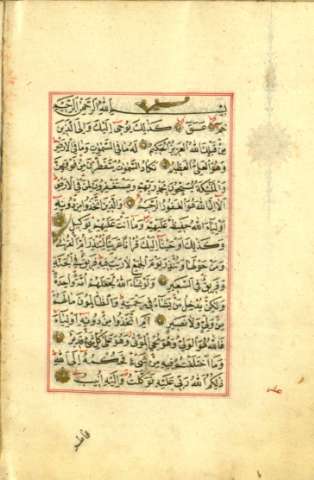 بِسْمِ اللهِ الرَّحْمٰنِ الرَّحِيمِ
حٰمٓ عٓسٓقٓ كَذٰلِكَ يُوحِى اِلَيْكَ وَاِلَى الَّذِينَ
مِنْ قَبْلِكَ اللهُ الْعَزِيزُ الْحَكِيمُ لَهُ مَا فِى السَّمٰوَاتِ وَمَا فِى الْاَرْضِ
وَهُوَ الْعَلِىُّ الْعَظِيمُ تَكَادُ السَّمٰوَاتُ يَتَفَطَّرْنَ مِنْ فَوْقِهِنَّ
وَالْمَلٰٓئِكَةُ يُسَبِّحُونَ بِحَمْدِ رَبِّهِمْ وَيَسْتَغْفِرُونَ لِمَنْ فِى الْاَرْضِ
اَلَا اِنَّ اللهَ هُوَ الْغَفُورُ الرَّحِيمُ وَالَّذِينَ اتَّخَذُوا مِنْ دُونِهِ
اَوْلِيَاءَ اللهُ حَفِيظٌ عَلَيْهِمْ وَمَا اَنْتَ عَلَيْهِمْ بِوَكِيلٍ
وَكَذٰلِكَ اَوْحَيْنَا اِلَيْكَ قُرْاٰنًا عَرَبِيًّا لِتُنْذِرَ اُمَّ الْقُرٰى
وَمَنْ حَوْلَهَا وَتُنْذِرَ يَوْمَ الْجَمْعِ لَا رَيْبَ فِيهِ فَرِيقٌ فِى الْجَنَّةِ
وَفَرِيقٌ فِى السَّعِيرِ وَلَوْ شَاءَ اللهُ لَجَعَلَهُمْ اُمَّةً وَاحِدَةً
وَلٰكِنْ يُدْخِلُ مَنْ يَشَاءُ فِى رَحْمَتِهِ وَالظَّالِمُونَ مَا لَهُمْ
مِنْ وَلِىٍّ وَلَا نَصِيرٍ اَمِ اتَّخَذُوا مِنْ دُونِهِ اَوْلِيَاءَ
فَاللهُ هُوَ الْوَلِىُّ وَهُوَ يُحْيِى الْمَوْتٰى وَهُوَ عَلٰى كُلِّ شَىْءٍ قَدِيرٌ
وَمَا اخْتَلَفْتُمْ فِيهِ مِنْ شَىْءٍ فَحُكْمُهُ اِلَى اللهِ
ذٰلِكُمُ اللهُ رَبِّى عَلَيْهِ تَوَكَّلْتُ وَاِلَيْهِ اُنِيبُ
فاطر